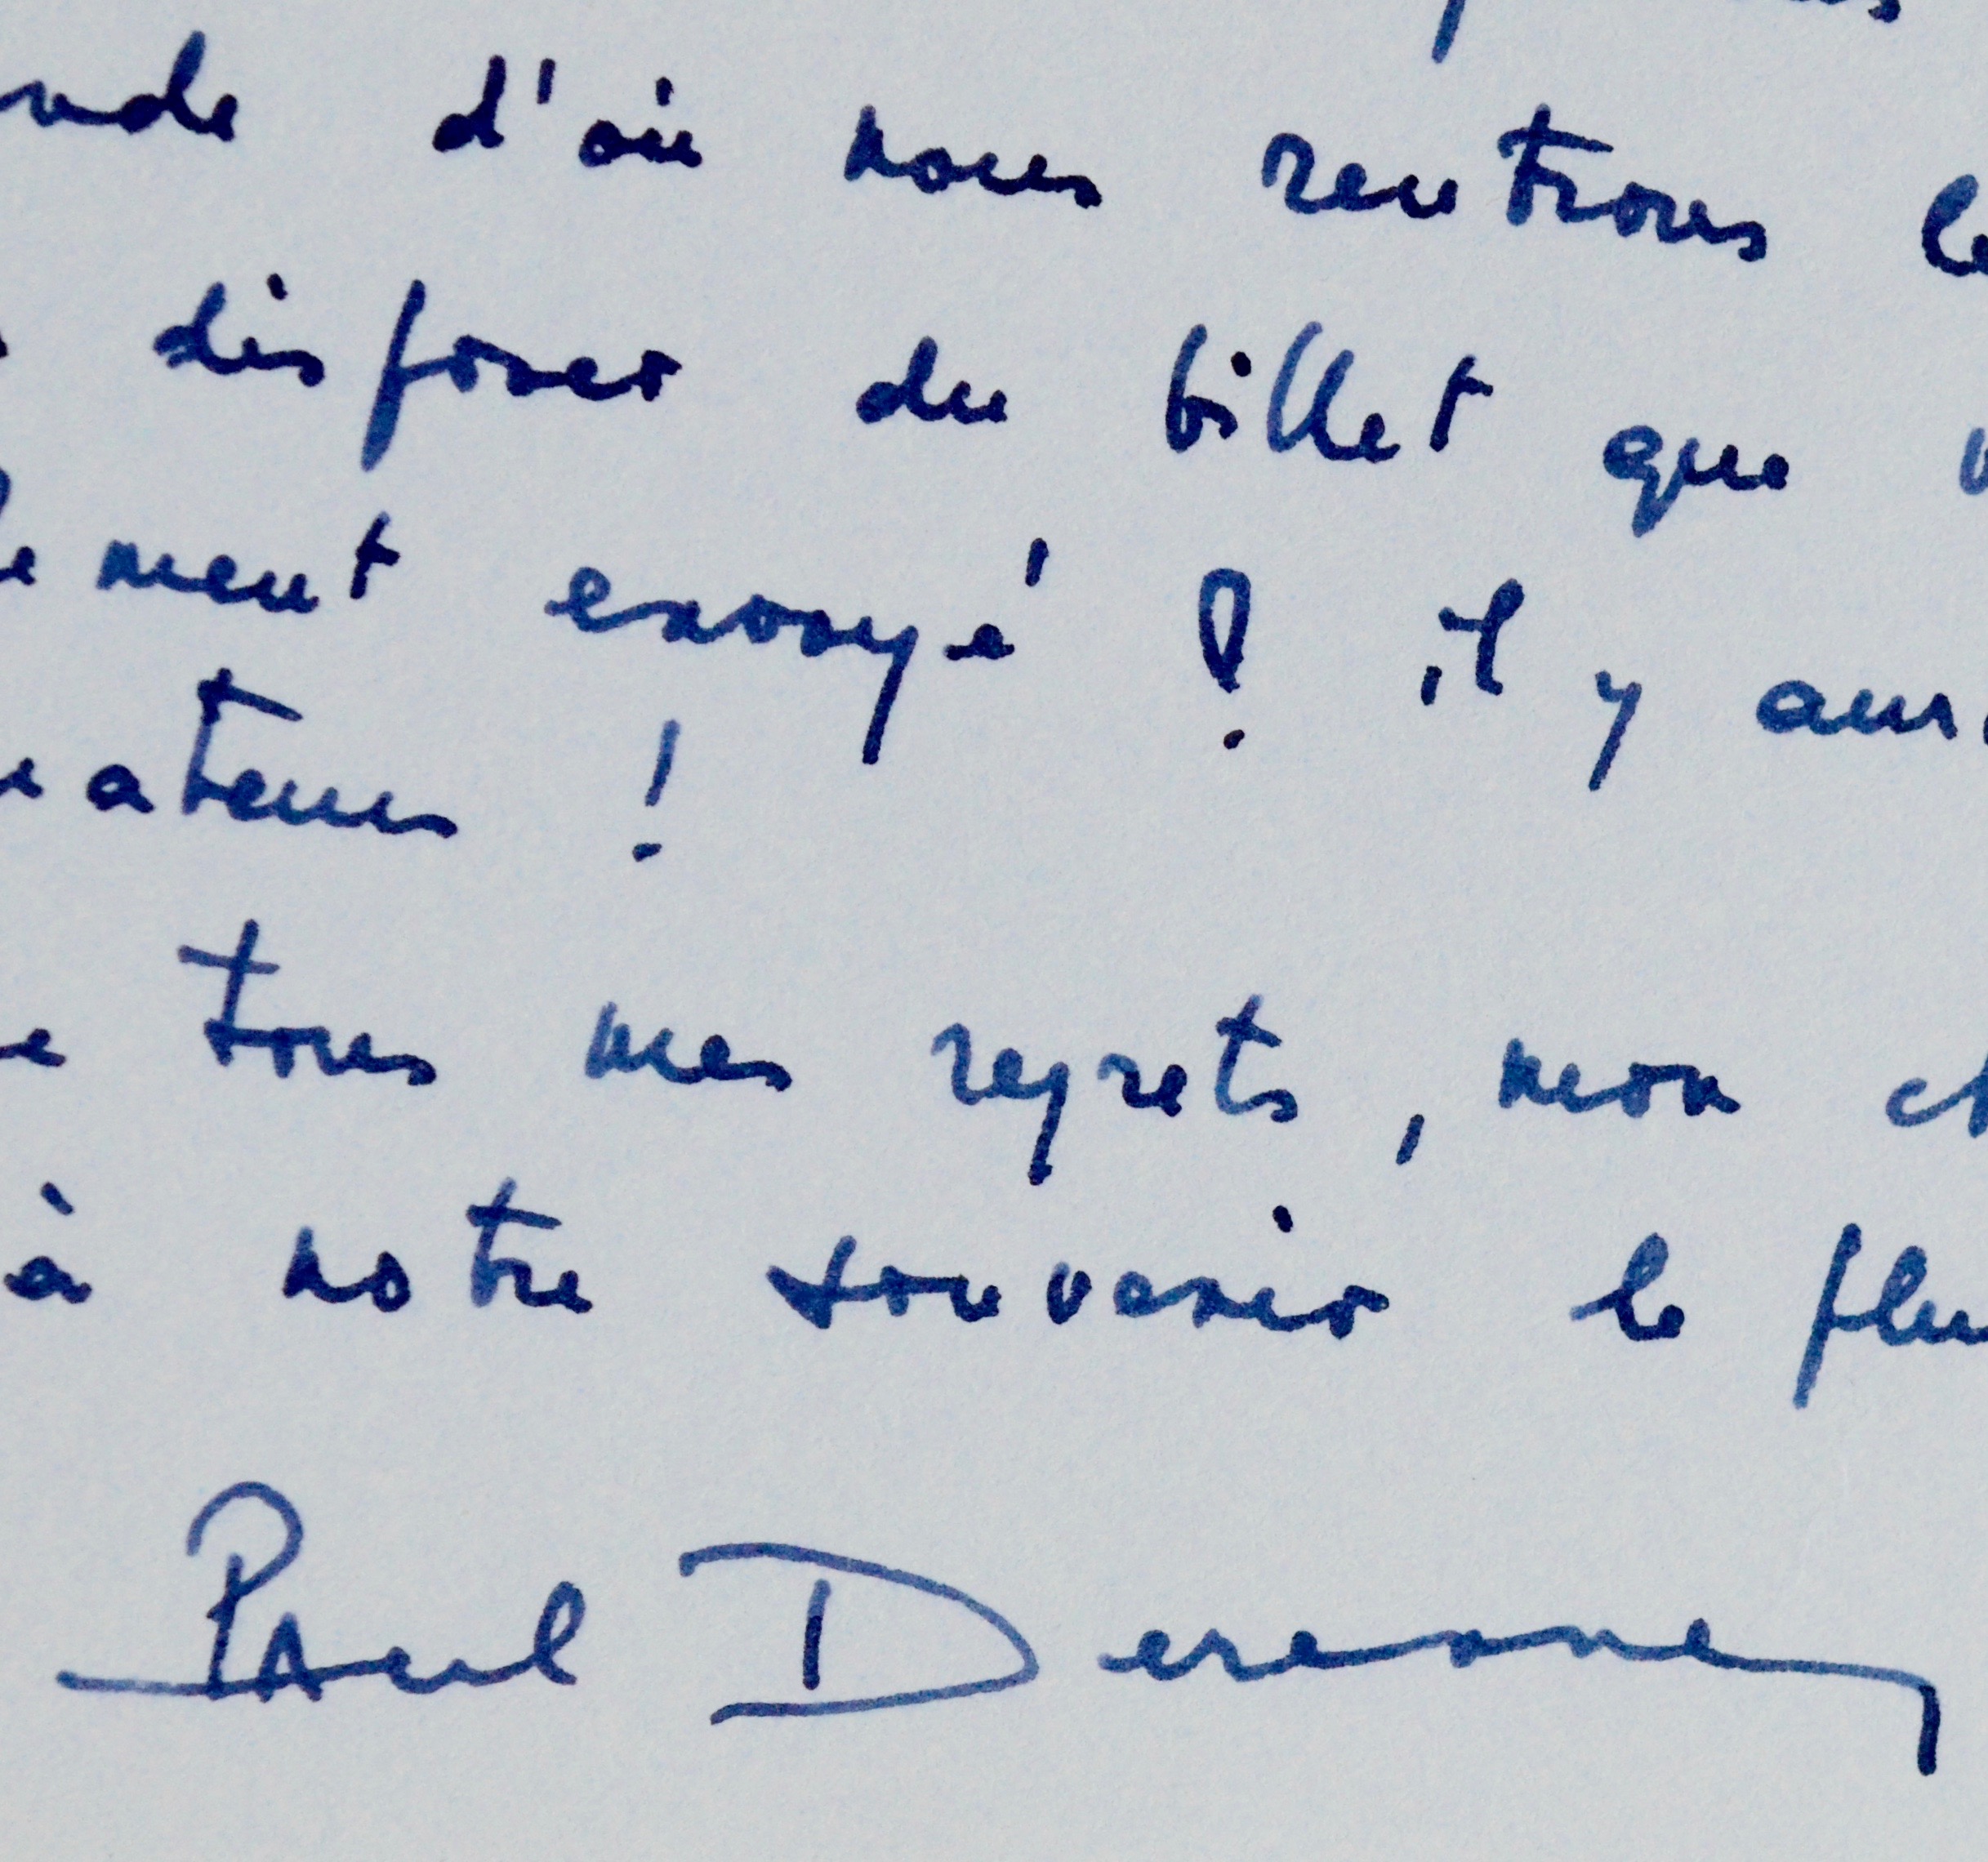 nde d'où nous rentrons le
disposer du billet que v
lement envoyé ! il y aura
ateurs !
e tous mes regrets, mon ch
à notre souvenir le plu
Paul Derenne